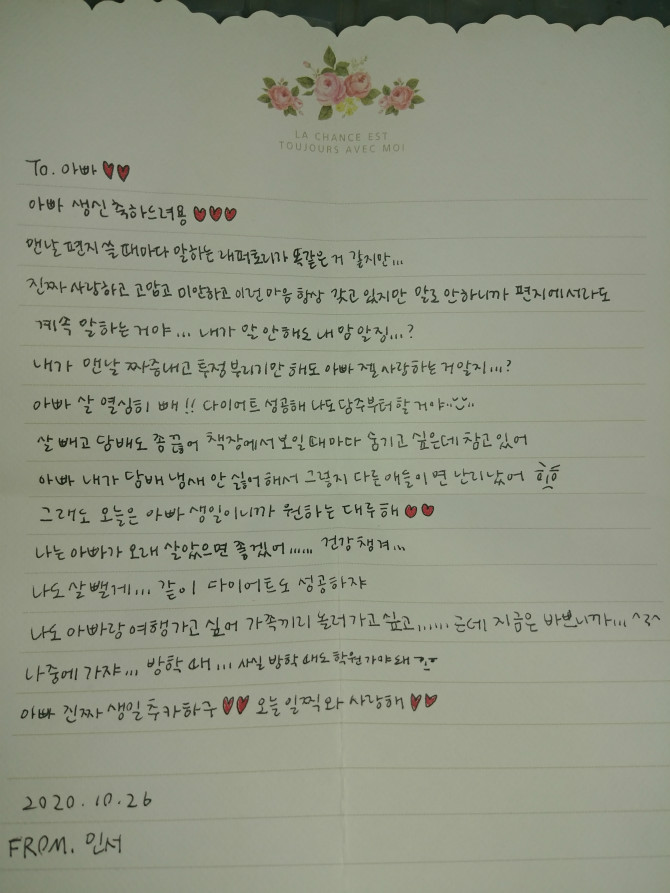 LA CHANCE EST
TOUJOURS AVEC MOI
To. 아빠♥♥
아빠 생신 축하드려용 ♥♥♥
맨날 편지 쓸 때마다 말하는 래퍼토리가 똑같은 거 같지만...
진짜 사랑하고 고맙고 미안하고 이런 마음 항상 갖고 있지만 말로 안하니까 편지에서라도
계속 말하는 거야... 내가 말 안해도 내 맘 알징...?
내가 맨날 짜증내고 투정 부리기만 해도 아빠 젤 사랑하는 거 알지...?
아빠 살 열심히 빼!! 다이어트 성공해 나도 담주부터 할 거야
살 빼고 담배도 좀 끊어 책장에서 보일 때마다 숨기고 싶은데 참고 있어
아빠 내가 담배 냄새 안 싫어해서 그렇지 다른 애들이면 난리났어
그래도 오늘은 아빠 생일이니까 원하는 대루해 ♥♥
나는 아빠가 오래 살았으면 좋겠어...... 건강 챙겨...
나도 살 뺄게... 같이 다이어트도 성공하쟈
나도 아빠랑 여행가고 싶어 가족끼리 놀러가고 싶고...... 근데 지금은 바쁘니까... ^3^
나중에 가쟈... 방학 때... 사실 방학 때도 학원 가야 돼
아빠 진짜 생일 추카하구 ♥♥ 오늘 일찍와 사랑해 ♥♥
2020.10.26
FROM. 민서